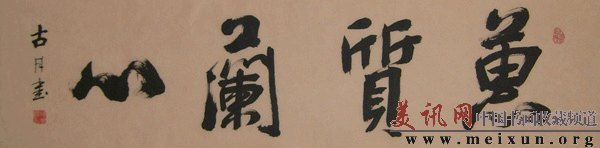 蕙質蘭心
古月書
美讯网 中国书画收藏频道
www.meixun.org